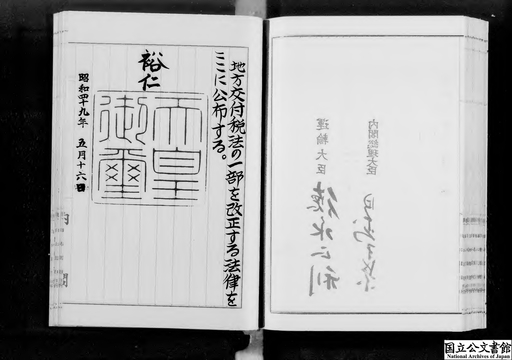 地方交付税法の一部を改正する法律を
ここに公布する。
裕仁
天皇
御璽
昭和四十九年 五月十六日
内閣総理大臣
運輸大臣
国立公文書館
National Archives of Japan